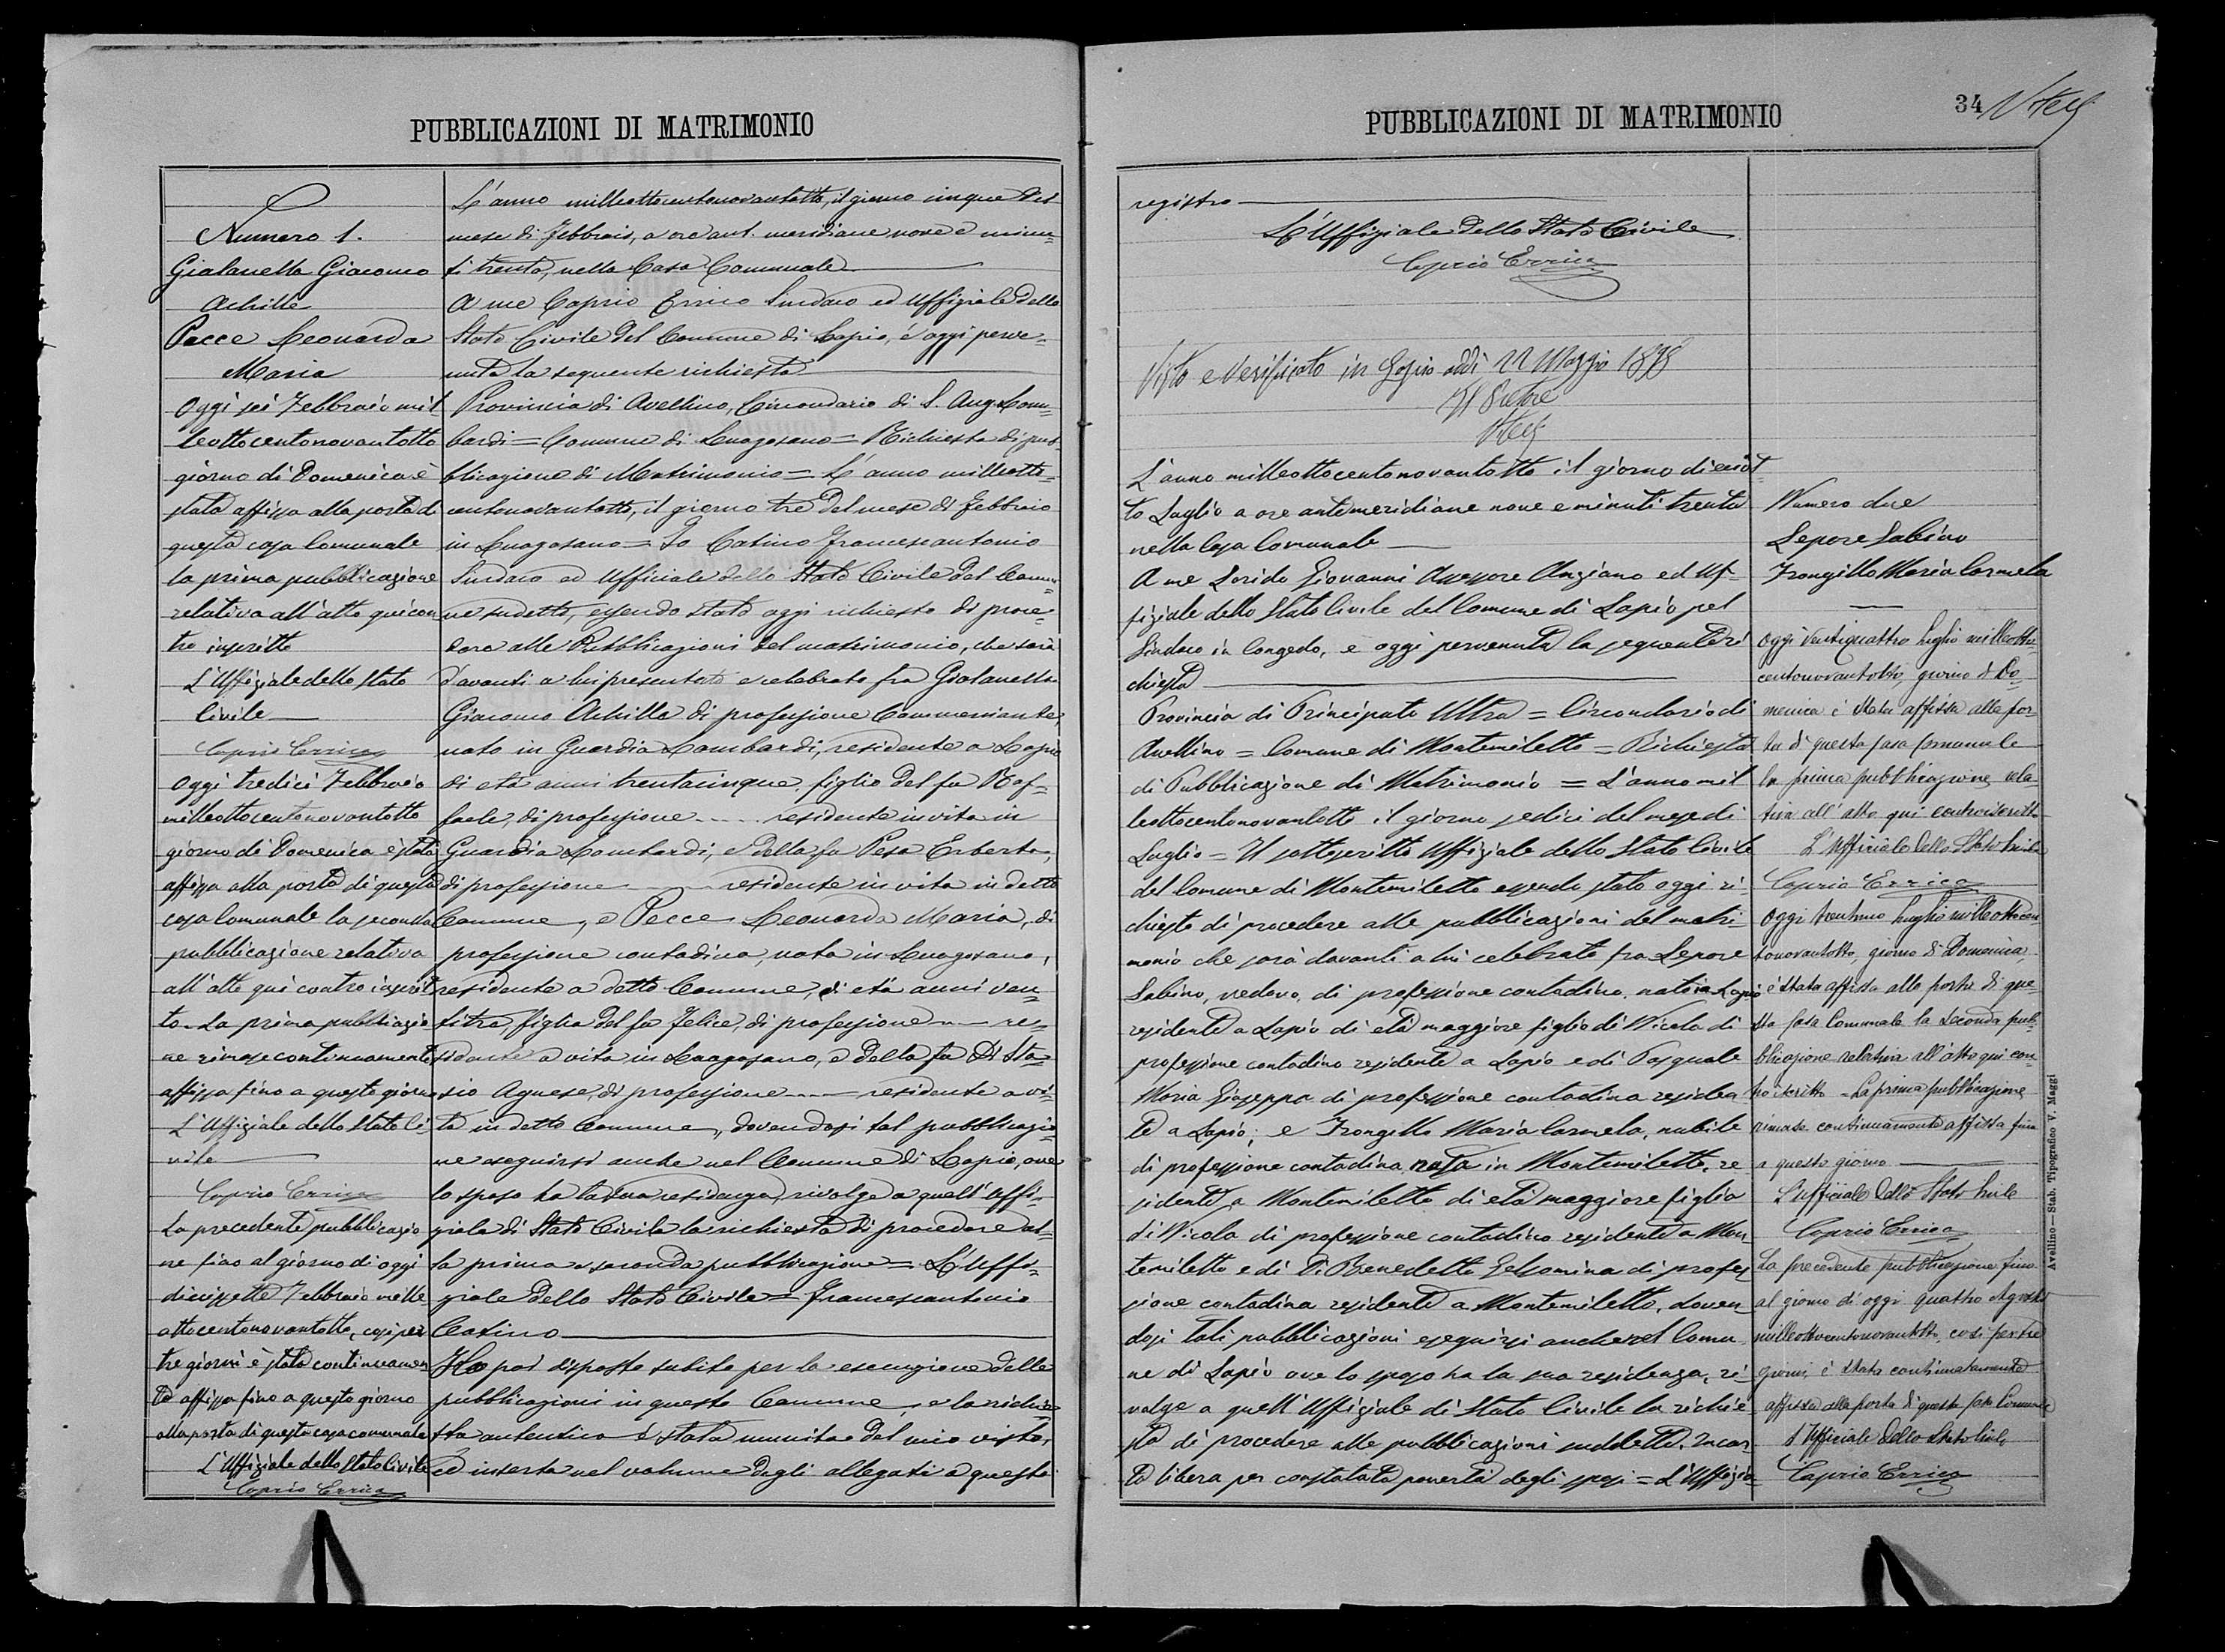 PUBBLICAZIONI DI MATRIMONIO
Numero 1.
Gialanella Giacomo
Achille
Pecce Leonarda
Maria
Oggi sei Febbraio mil
leottocentonovantotto
giorno di Domenica è
stata affissa alla porta di
questa casa Comunale
la prima pubblicazione
relativa all'atto qui con
tro inscritto
L'Uffiziale dello Stato
Civile
Caprio Errico
Oggi tredici Febbraio
milleottocentonovantotto
giorno di Domenica è stata
affissa alla porta di questa
casa Comunale la seconda
pubblicazione relativa
all'atto qui contro inscrit
to. La prima pubblicazio
ne rimase continuamente
affissa fino a questo giorno
L'Uffiziale dello Stato Ci-
vile
Caprio Errico
La precedente pubblicazio
ne fino al giorno di oggi
diciassette Febbraio mille
ottocentonovantotto, così per
tre giorni è stata continuamen
te affissa fino a questo giorno
alla porta di questa casa comunale
L'Uffiziale dello Stato Civile
Caprio Errico
L'anno milleottocentonovantotto, il giorno cinque del
mese di Febbraio, a ore ant. meridiane nove e minu-
ti trenta, nella Casa Comunale
A me Caprio Errico Sindaco ed Uffiziale dello
Stato Civile del Comune di Lapio, è oggi perve-
nuta la seguente richiesta
Provincia di Avellino, Circondario di S. Ang. Lom-
bardi = Comune di Luogosano = Richiesta di pub
blicazione di Matrimonio = L'anno milleotto-
centonovantotto, il giorno tre del mese di Febbraio
in Luogosano = Io Catino Francescantonio
Sindaco ed Ufficiale dello Stato Civile del Comu-
ne sudetto, essendo stato oggi richiesto di proce-
dere alle Pubblicazioni del matrimonio, che sarà
d'avanti a lui presentato e celebrato fra Gialanella
Giacomo Achille di professione Commerciante,
nato in Guardia Lombardi, residente a Lapio
di età anni trentacinque, figlio del fu Raf-
faele, di professione .... residente in vita in
Guardia Lombardi, e della fu Pesa Erberta,
di professione residente in vita in detto
Comune, e Pecce Leonarda Maria, di
professione contadina, nata in Luogosano,
residente a detto Comune, di età anni ven-
titre, figlia del fu Felice, di professione re-
sidente a vita in Luogosano, e della fu Di Sta-
sio Agnese, di professione .... residente a vi-
ta in detto Comune, dovendosi tal pubblicazio-
ne eseguirsi anche nel Comune di Lapio, ove
lo sposo ha la sua residenza, rivolge a quell'Uffi-
ziale di Stato Civile la richiesta di procedere al-
la prima e seconda pubblicazione = L'Uffi-
ziale dello Stato Civile = Francescantonio
Catino
Ho poi disposto subito per la esecuzione delle
pubblicazioni in questo Comune, e la richie-
sta autentica è stata munita del mio visto,
ed inserta nel volume degli allegati a questo
PUBBLICAZIONI DI MATRIMONIO
34
registro
L'Uffiziale dello Stato Civile
Caprio Errico
Visto e verificato in Lapio addì 22 Maggio 1898
Il Pretore
L'anno milleottocentonovantotto il giorno diciot
to Luglio a ore antemeridiane nove e minuti trenta
nella Casa Comunale
A me Lorido Giovanni Assessore Anziano ed Uf-
fiziale dello Stato Civile del Comune di Lapio pel
Sindaco in congedo, è oggi pervenuta la seguente ri
chiesta
Provincia di Principato Ultra = Circondario di
Avellino = Comune di Montemiletto = Richiesta
di Pubblicazione di Matrimonio = L'anno mil
leottocentonovantotto il giorno sedici del mese di
Luglio = Il sottoscritto Uffiziale dello Stato Civile
del Comune di Montemiletto essendo stato oggi ri
chiesto di procedere alle pubblicazioni del matri-
monio che sarà davanti a lui celebrato fra Lepore
Sabino, vedovo, di professione contadino, nato in Lapio
residente a Lapio di età maggiore figlio di Nicola di
professione contadino residente a Lapio e di Pasquale
Maria Giuseppa di professione contadina residen
te a Lapio; e Frongillo Maria Carmela, nubile
di professione contadina nata in Montemiletto, re
sidente a Montemiletto di età maggiore figlia
di Nicola di professione contadino residente a Mon
temiletto e di Di Benedetto Gelsomina di profes
sione contadina residente a Montemiletto, doven
dosi tali pubblicazioni eseguirsi anche nel Comu
ne di Lapio ove lo sposo ha la sua residenza, ri-
volge a quell'Uffiziale di Stato Civile la richie
sta di procedere alle pubblicazioni suddette. In car
ta libera per constatata povertà degli sposi = L'Uffizia-
Numero due
Lepore Sabino
Frongillo Maria Carmela
Oggi Ventiquattro Luglio milleotto-
centonovantotto, giorno di Do-
menica è stata affissa alla por-
ta di questa casa Comunale
la prima pubblicazione rela-
tiva all'atto qui controiscritto
L'Ufficiale dello Stato Civile
Caprio Errico
Oggi trentuno Luglio milleottocen-
tonovantotto, giorno di Domenica
è stata affissa alla porta di que-
sta Casa Comunale la seconda pub-
blicazione relativa all'atto qui con-
tro iscritto = La prima pubblicazione
rimase continuamente affissa fino
a questo giorno
L'Ufficiale dello Stato Civile
Caprio Errico
La precedente pubblicazione fino
al giorno di oggi quattro Agosto
milleottocentonovantotto, così per tre
giorni, è stata continuatamente
affissa alla porta di questa Casa Comunale
L'Ufficiale dello Stato Civile
Caprio Errico
Avellino — Stab. Tipografico V. Maggi